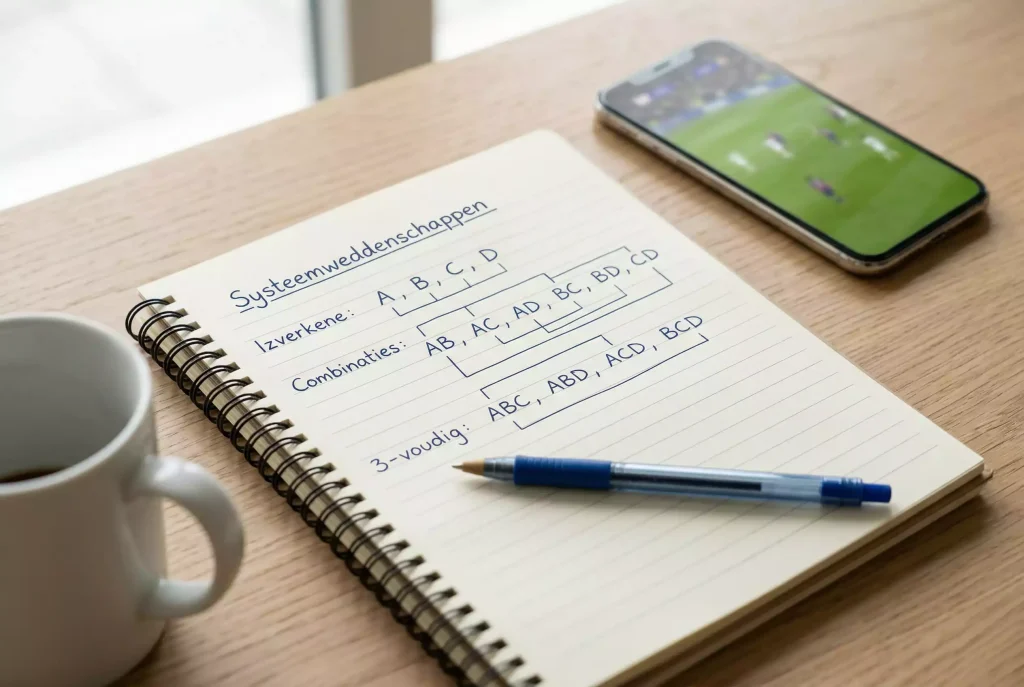 Systeemweddenschappen
Izverkene: A, B, C, D
Combinaties: AB, AC, AD, BC, BD, CD
3-voudig: ABC, ABD, ACD, BCD